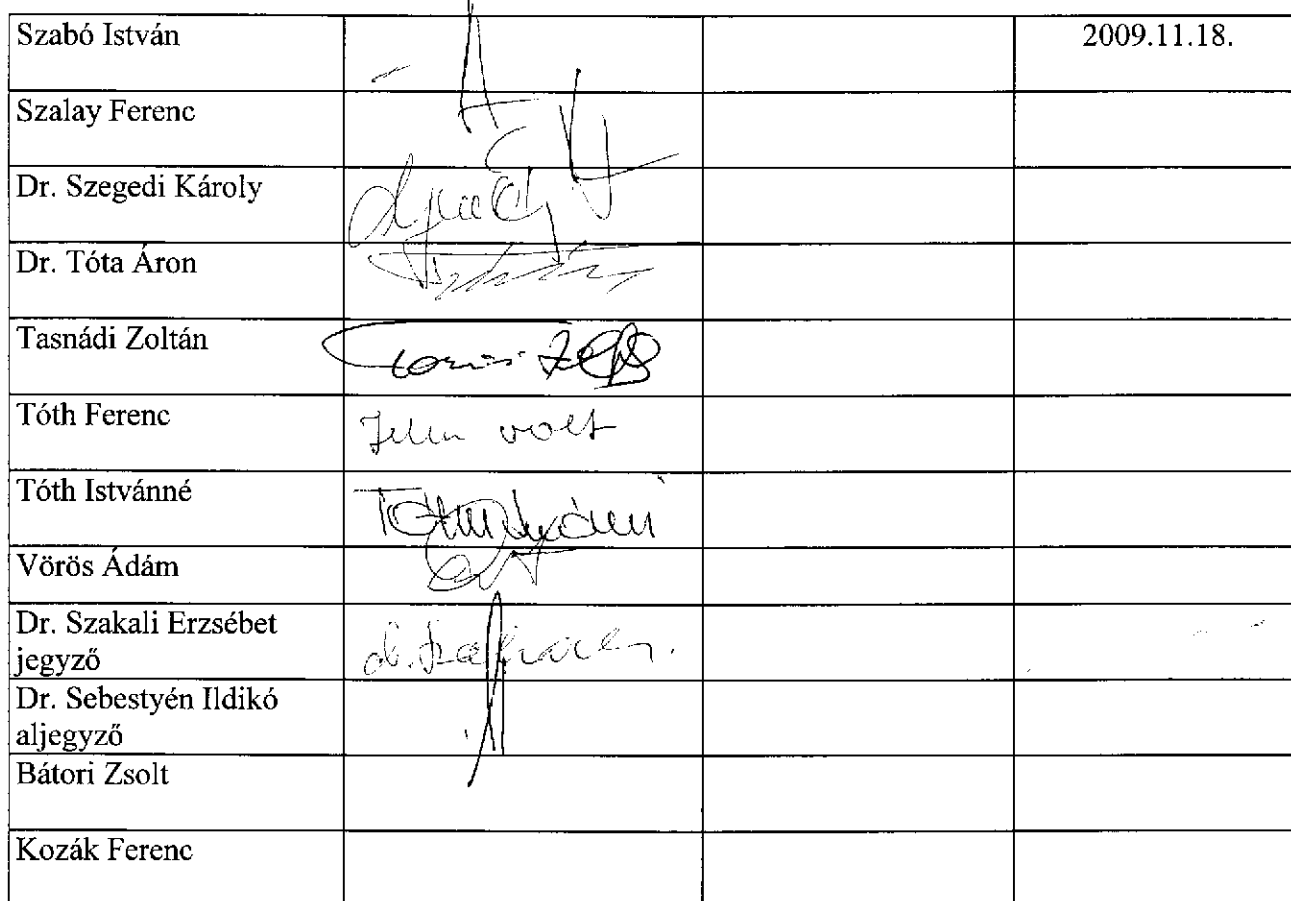 Szabó István 2009.11.18.
Szalay Ferenc
Dr. Szegedi Károly
Dr. Tóta Áron
Tasnádi Zoltán
Tóth Ferenc Jelen volt
Tóth Istvánné
Vörös Ádám
Dr. Szakali Erzsébet
jegyző
Dr. Sebestyén Ildikó
aljegyző
Bátori Zsolt
Kozák Ferenc